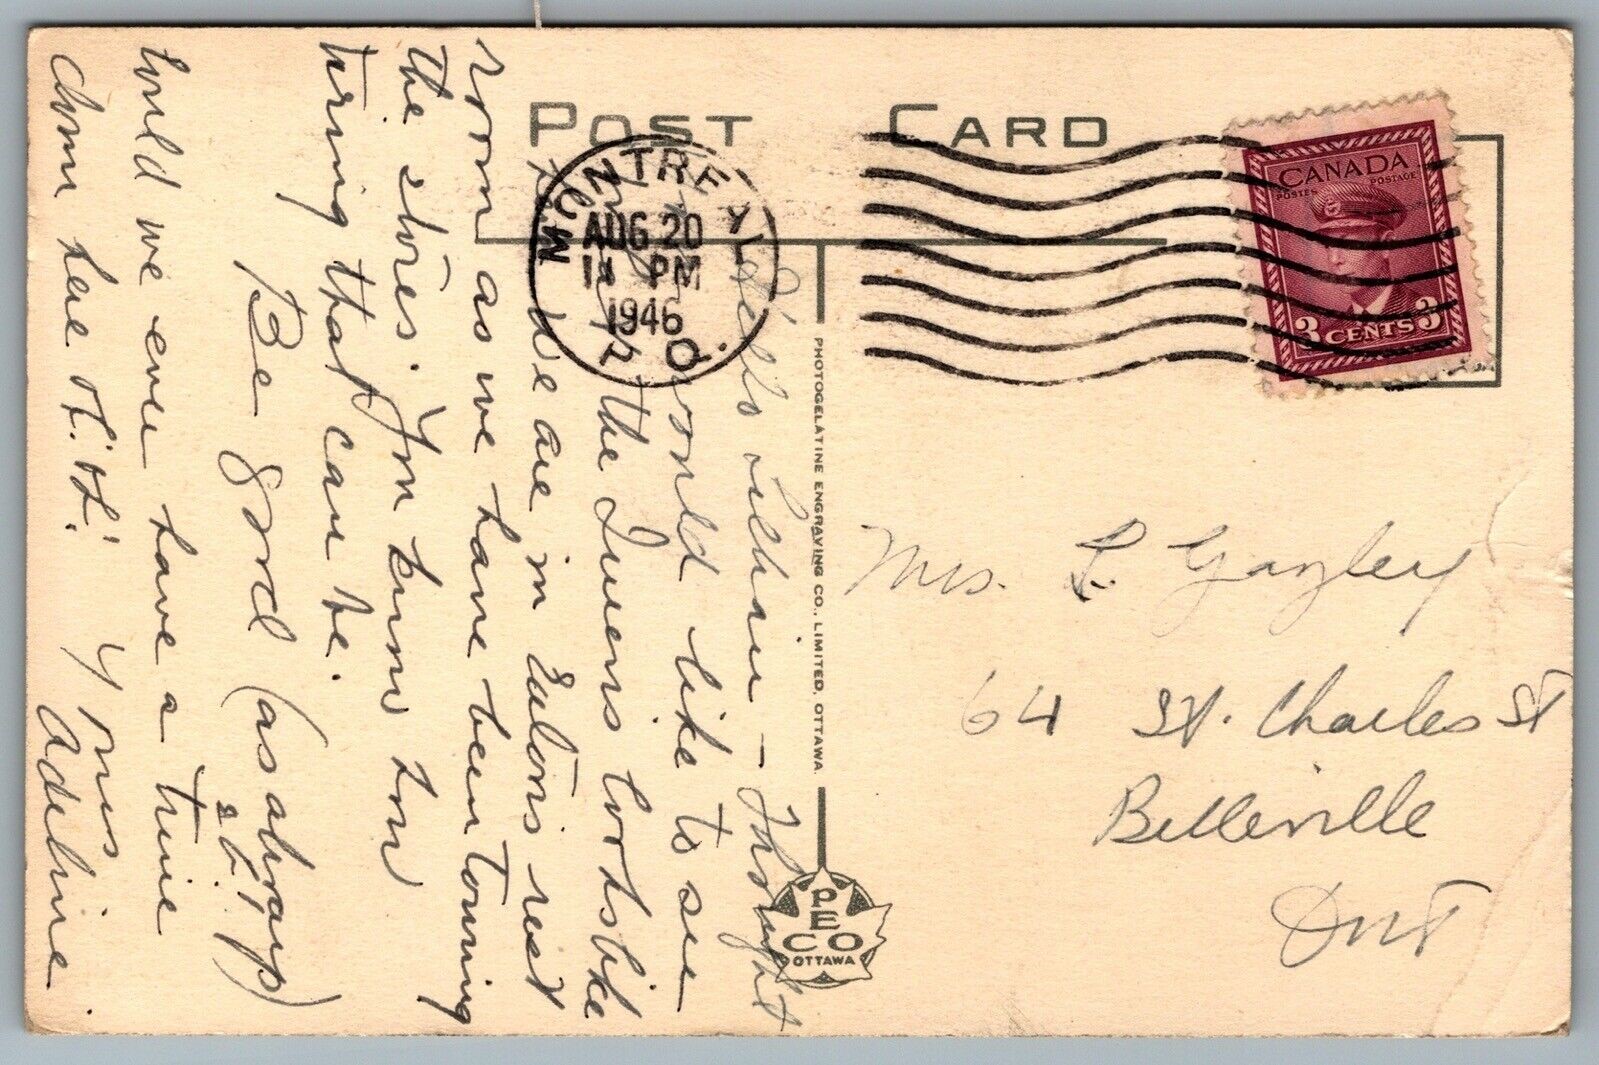 POST CARD
MONTREAL
AUG 20
PM
1946
P.Q.
CANADA
POSTES POSTAGE
3 CENTS 3
PHOTOGELATINE ENGRAVING CO., LIMITED, OTTAWA
PECO
OTTAWA
Mrs. L. Gayley
64 St. Charles St
Belleville
Ont
Hello - Thought
would like to see
the Queens looks like
We are in Eatons rest
room as we have been touring
the stores. You know how
tiring that can be.
Be good (as always)
Could we ever have a time
down here
Yours
Adeline.